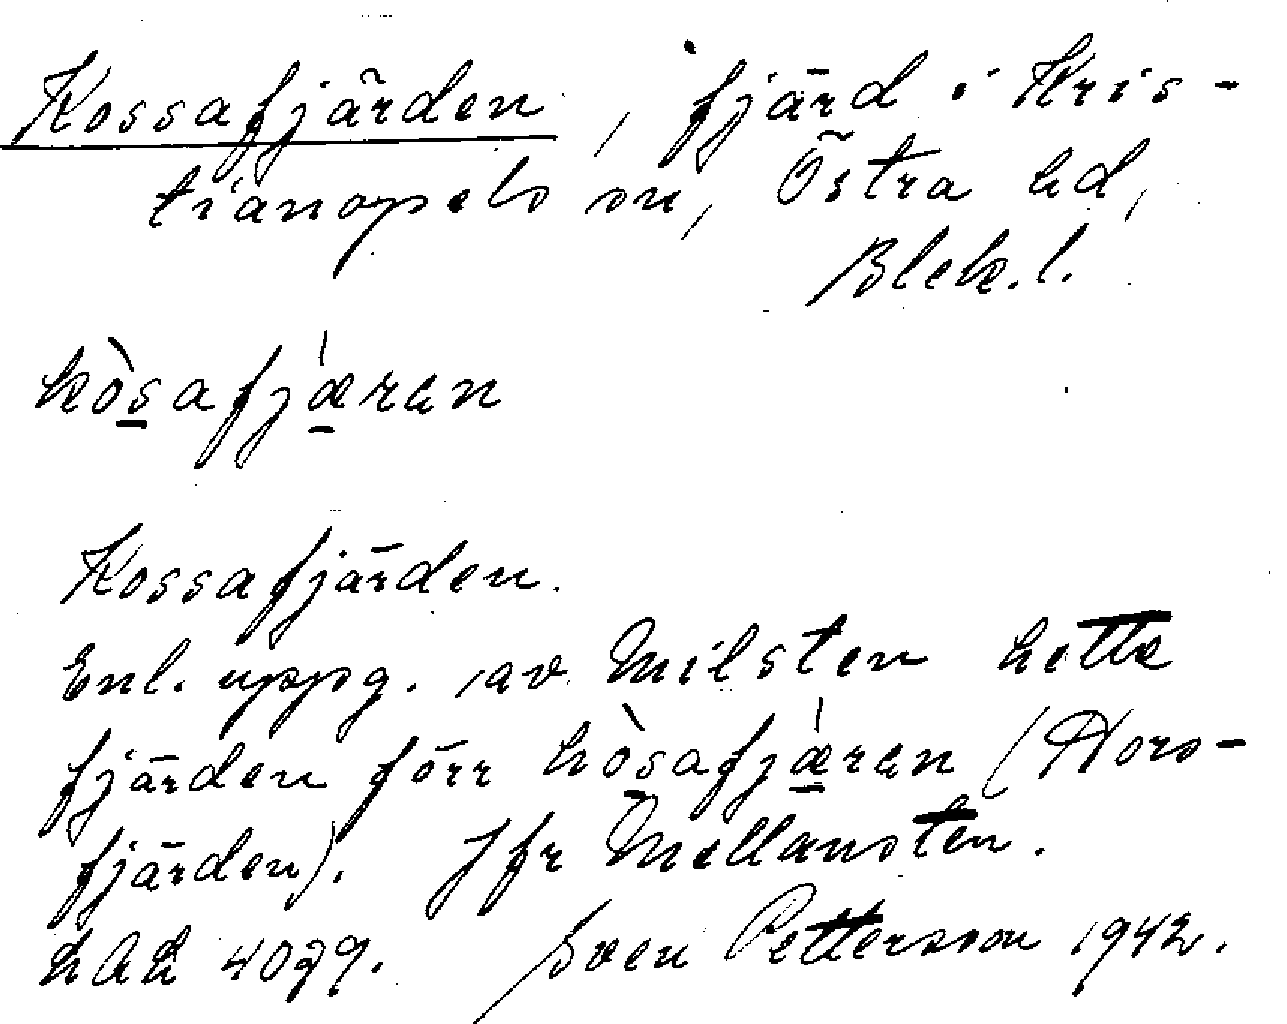 Kossafjärden, fjärd i Kris-
tianopels sn, Östra hd,
Blek. l.
kòsafjæ̀ran
Kossafjärden.
Enl. uppg. av Milsten hette
fjärden förr kòsafjæ̀ran (Kors-
fjärden). Jfr Mellansten.
LAL 4079. Sven Pettersson 1942.